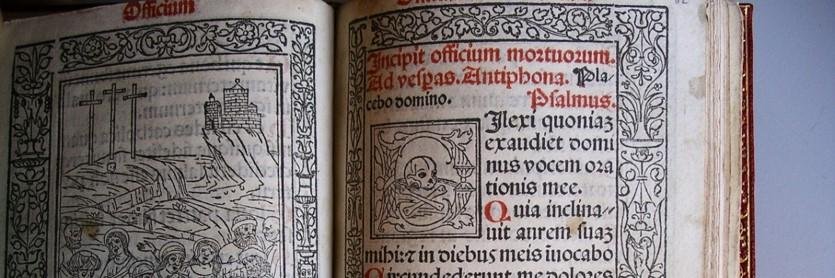 Officium
Incipit officium mortuorum.
Ad vesꝑas. Antiphona. Pla
cebo domino. Psalmus.
DIlexi quoniaz
exaudiet domi
nus vocem ora
tionis mee.
Quia inclina⸗
uit aurem suaz
mihi: ⁊ in diebus meis inuocabo
Circundederunt me dolores